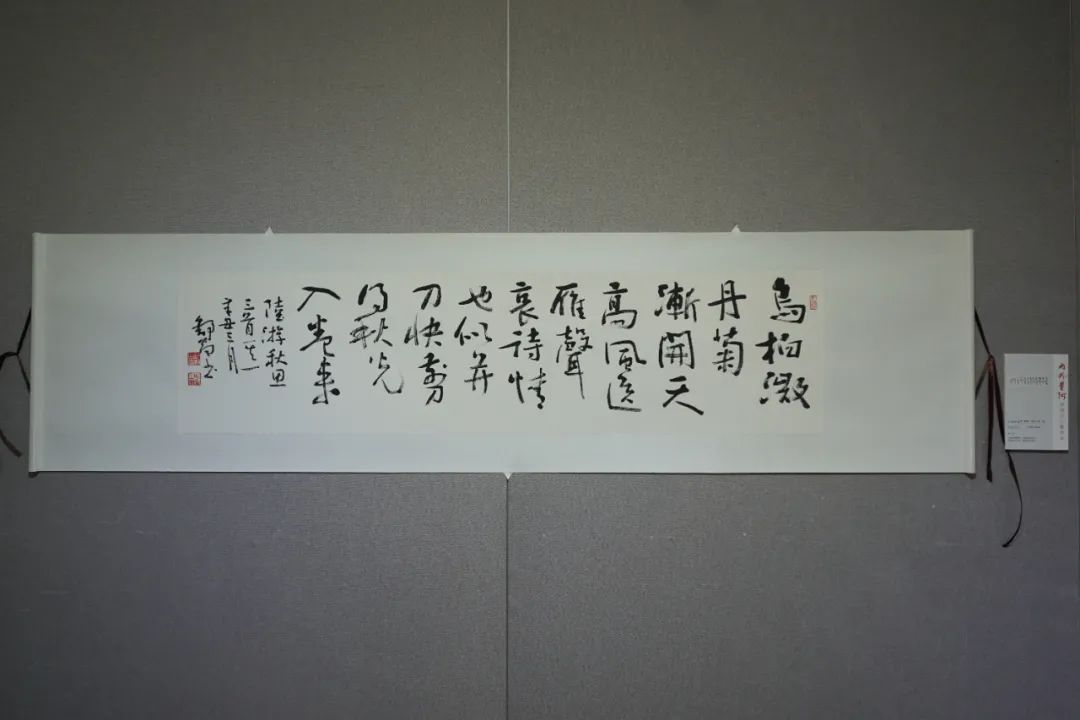 烏桕微
丹菊
漸開天
高風送
雁聲
哀詩情
也似并
刀快剪
得秋光
入卷來
陸游秋思
三首其一
辛丑三月
书